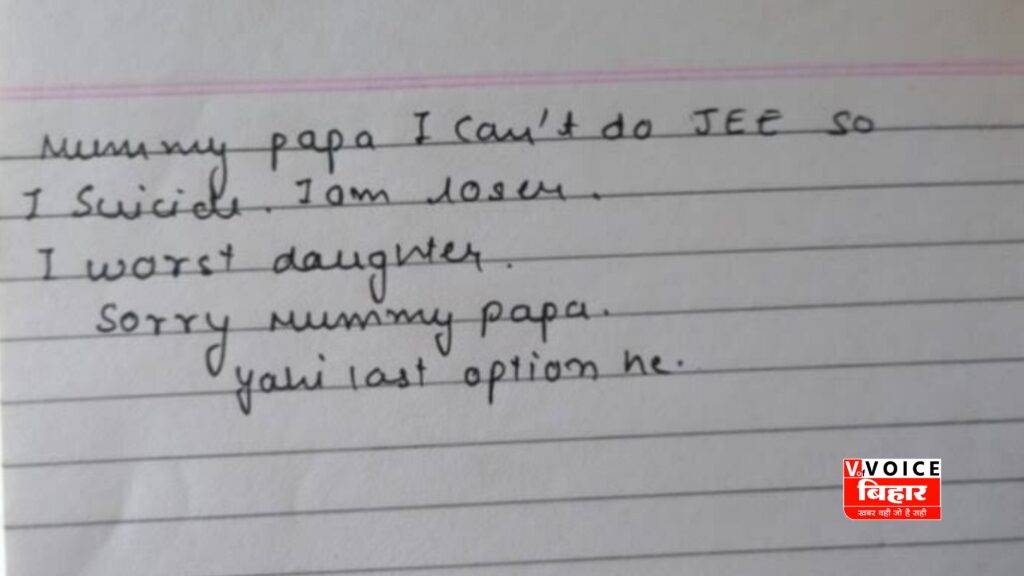 Mummy papa I can't do JEE so
I Suicide. I am loser.
I worst daughter.
Sorry Mummy papa.
yahi last option he.
V of VOICE
बिहार
खबर वही जो है सही